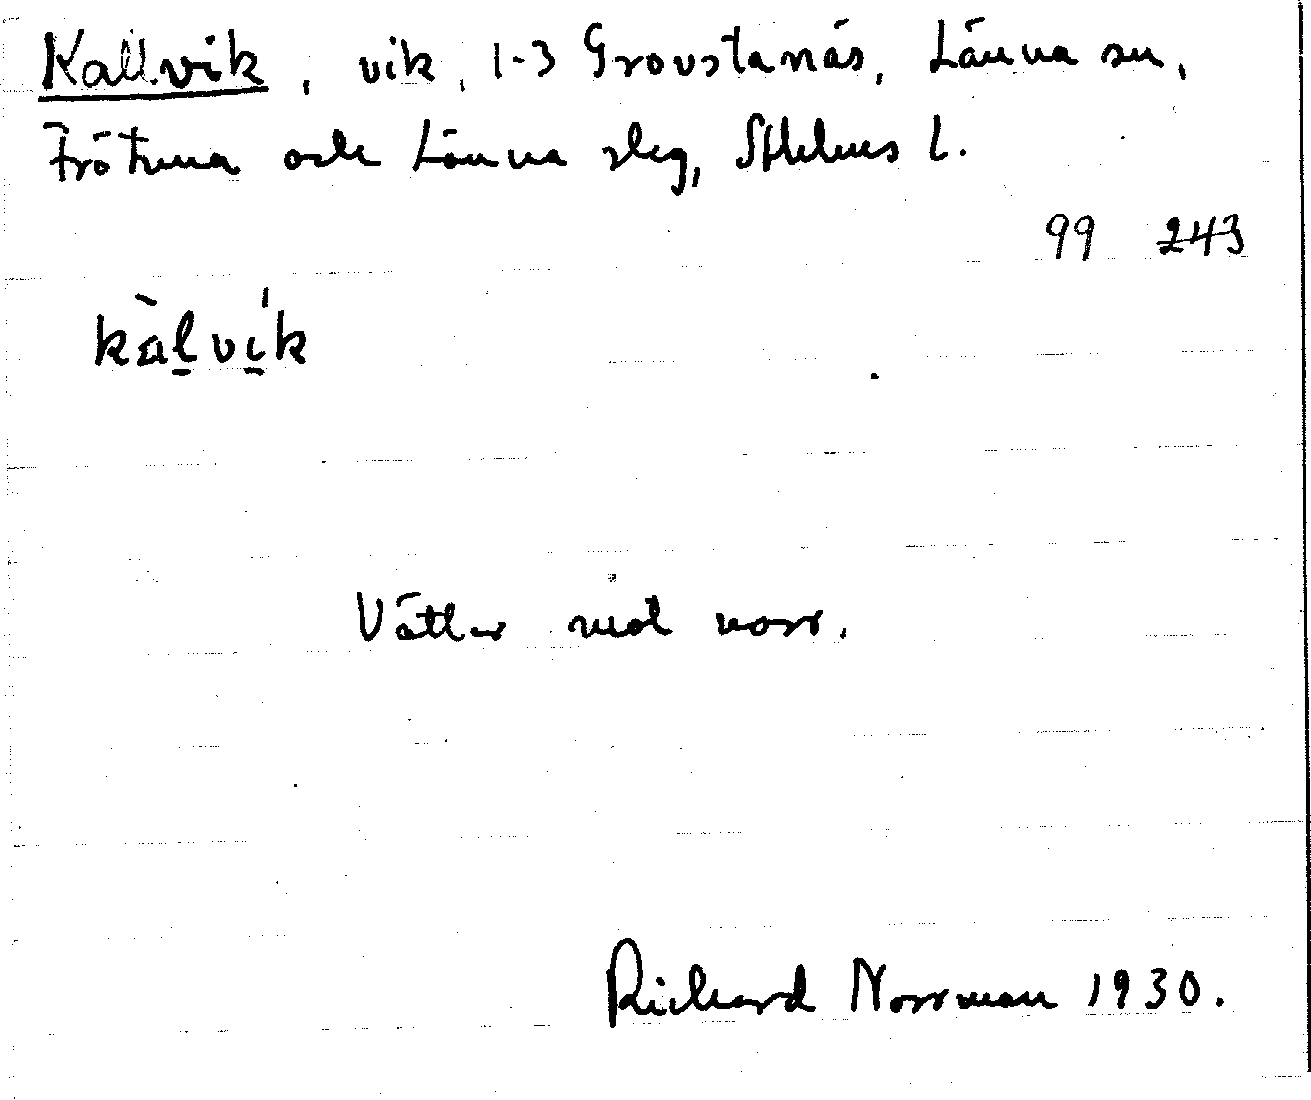 Kallvik, vik, 1-3 Grovstanäs, Länna sn,
Frötuna och Länna slag, Sthlms l.
99 243
kàl̠ví̠k
Vätter mot norr.
Richard Norrman 1930.